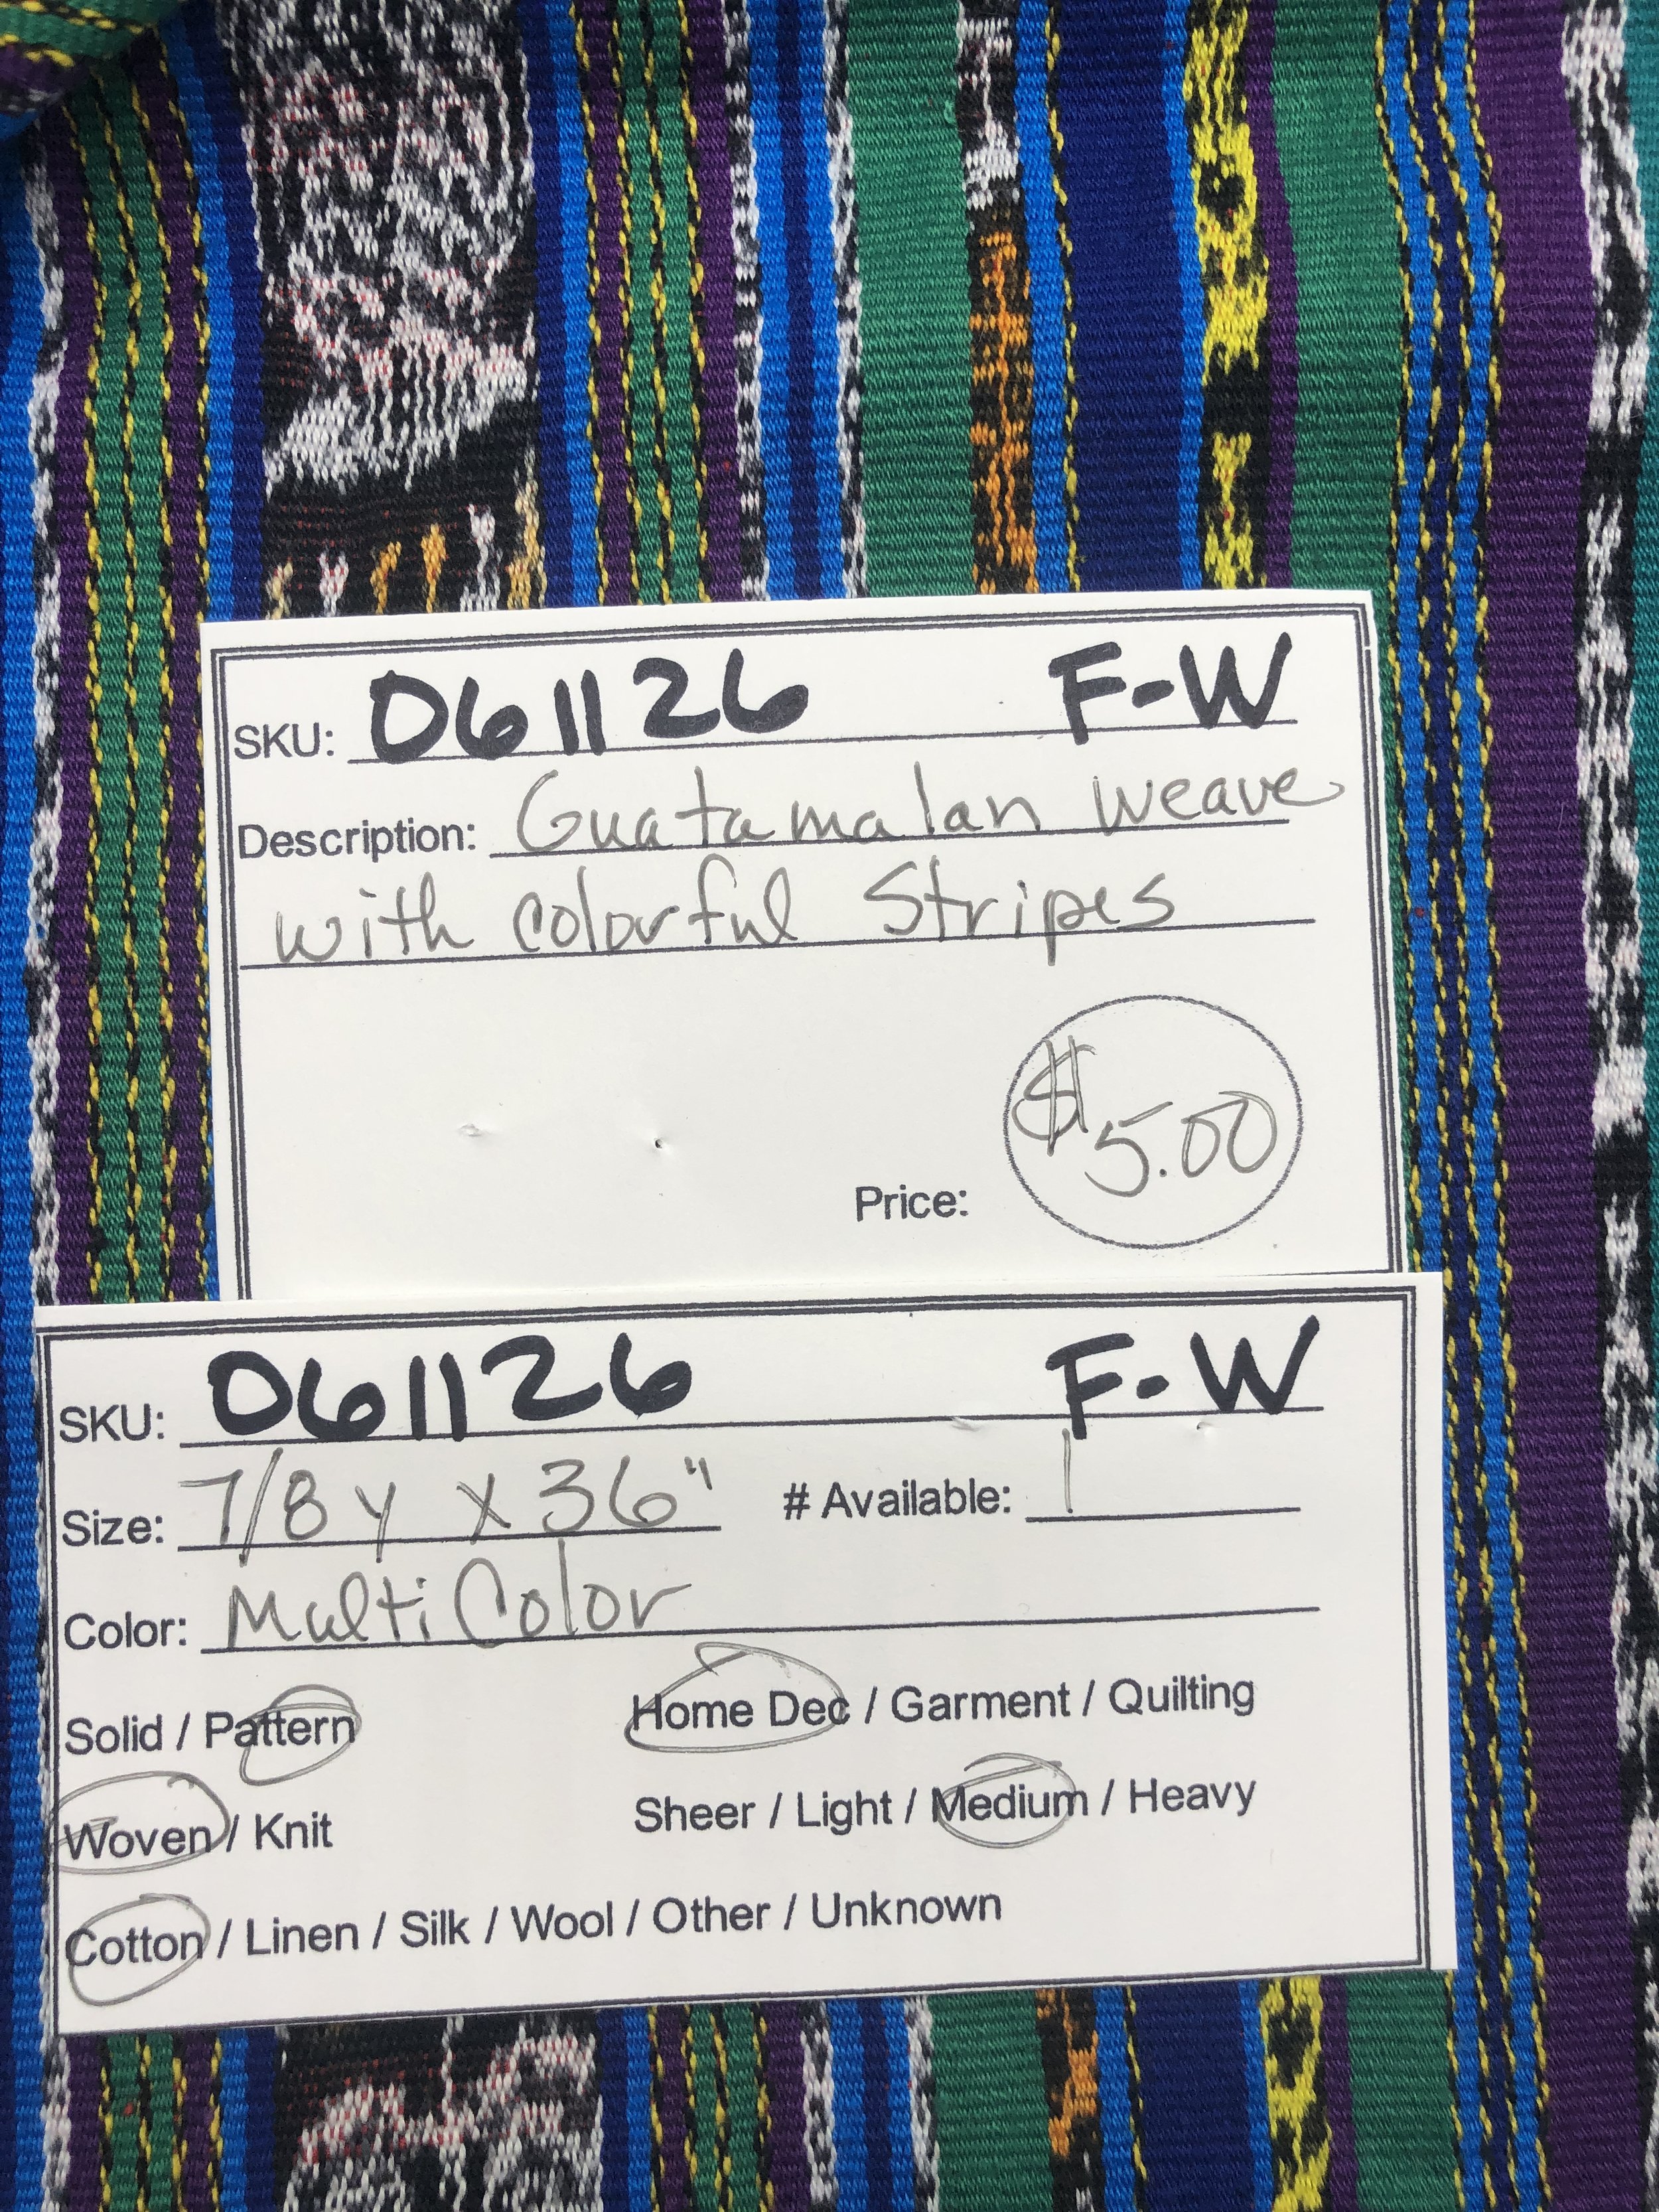 SKU: 061126 F-W
Description: Guatamalan weave
with colorful Stripes
Price: $5.00
SKU: 061126 F-W
Size: 7/8 y x 36" # Available: 1
Color: Multi Color
Solid / Pattern Home Dec / Garment / Quilting
Woven / Knit Sheer / Light / Medium / Heavy
Cotton / Linen / Silk / Wool / Other / Unknown